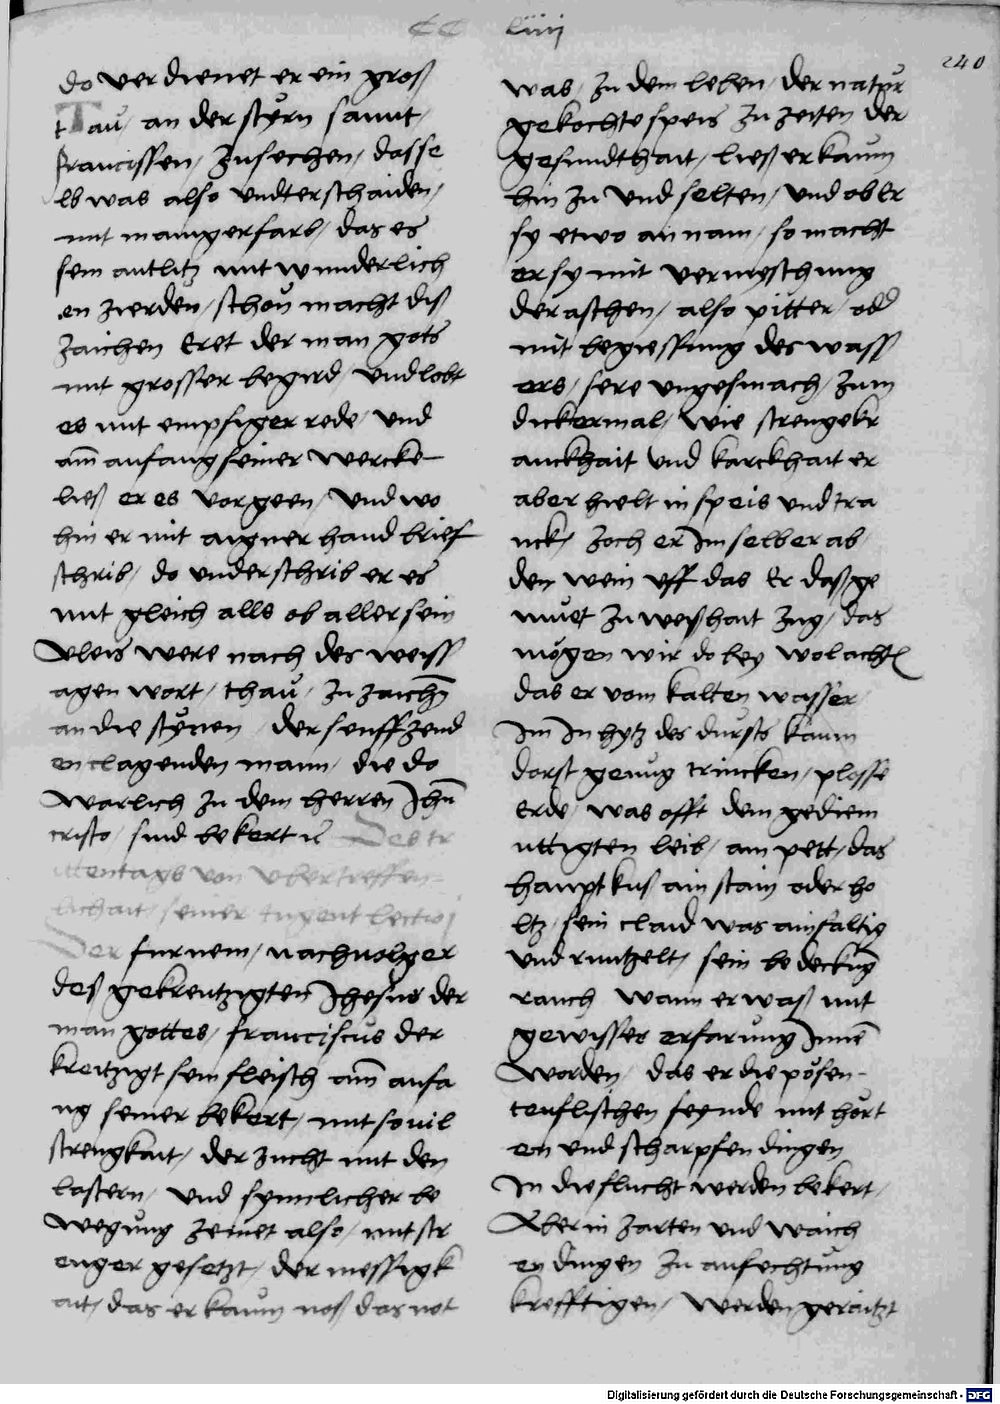 CC liiij
240
do ver dienet er ein groß
Tau / an der styrn sannt /
francissen / zusechen / dasse
lb was also undterschaiden /
mit mangerfarb / das es
sein antlitz mit wunderlich
en zierden / schon macht diß
zaichen Eret der man gots
mit grosser begird / und lobt
es mit empsiger rede / und
am anfang seiner wercke
ließ er es vorgeen / und wo
hin er mit aigner hand brief
schrib / do underschrib er es
mit gleich alls ob aller sein
vleis were nach des weiss
agen wort / thau / zu zaichn
an die styren / der seuffzend
en clagenden mann / die do
warlich zu dem herren Jhu
cristo / sind bekert
Des tr
ittentags von ubertreffen-
lichait / seiner tugent lectio j
Der furnem / nachvolger
deß gekreutzigten Jhesus der
man gottes / franciscus der
kreitzigt sein fleisch am anfa
ng seiner bekert / mit sovil
strengkait / der zucht mit den
lastern / und synnlicher be
wegung zemet also / mit str
enger gesetzt / der messigk
ait / das er kaum noß das not
was / zu dem leben / der natur
gekochte speis zu zeiten der
gesundthait / ließ er kaum
hin zu und selten / und ob Er
sy etwo an nam / so macht
er sy mit vermyschung
der aschen / also pitter / od
mit begiessung des wass
ers / sere ungesmach / zum
dickermal / wie strenge kr
anckhait und karckhait er
aber hielt in speis und tra
nck / zoch er Im selber ab /
den wein uff das Er daß ge
muet zu weißhait zug / das
mogen wir do bey wol acht
das er vom kalten wasser /
Im In hytz des dursts kaum
dorst genug trincken / plosse
Erde / was offt dem gediem
uttigten leib / am pett / das
haupt kuß ain stain oder ho
ltz / sein claid was ainfaltig
und runtzelt / sein bedeckung
rauch wann er waß mit
gewisser erfarung Innen
worden / das er die posen-
teuflischen feynde mit hort
en und scharpfen dingen
In die flucht werden bekert /
Aber in zarten und waich
en dingen zu anfechtung
krefftigen / werden geraitzt
Digitalisierung gefördert durch die Deutsche Forschungsgemeinschaft - DFG